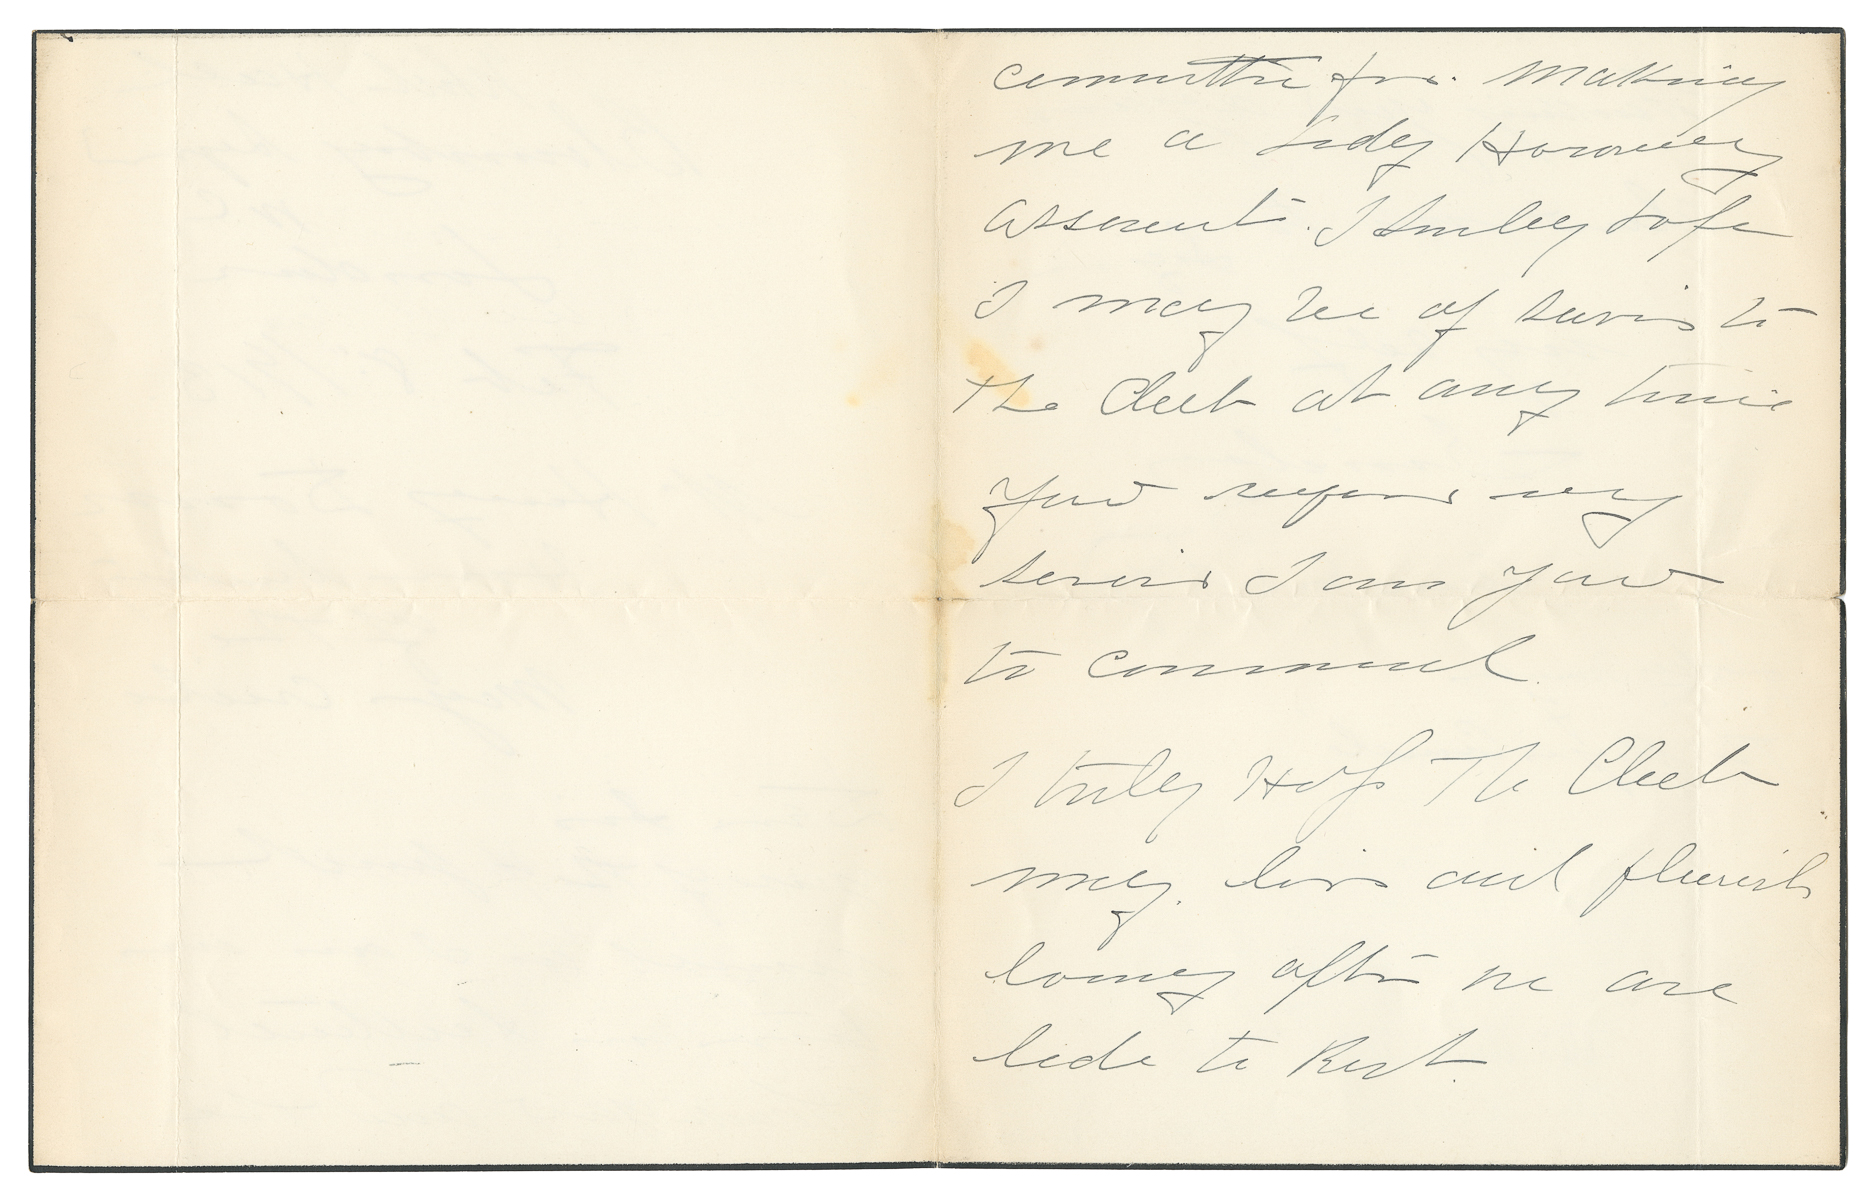 committee for making
me a Lady Honorary
I truly hope
I may be of servis to
The Club at any time
your my
servis I am your
to command
I truly Hope The Club
may live and flurish
long after we are
lade to Rest